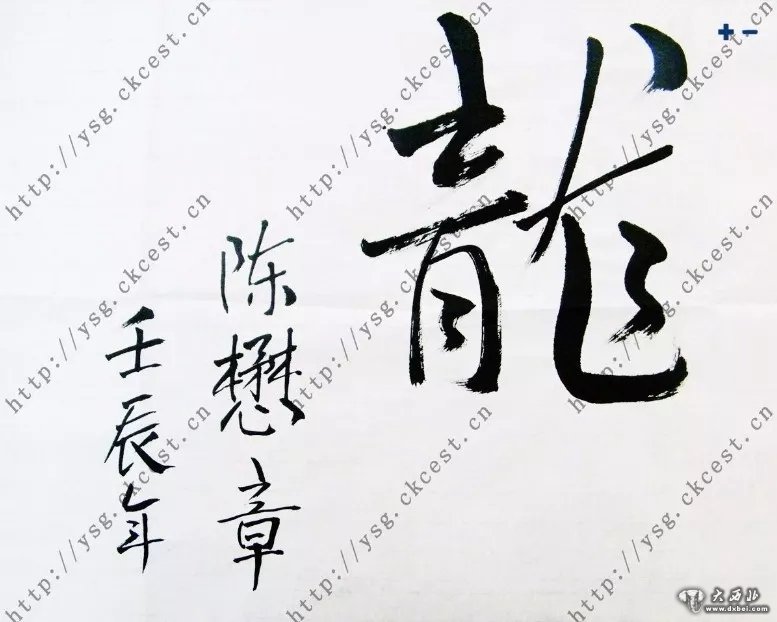 龍
陈懋章
壬辰年
http://ysg.ckcest.cn
http://ysg.ckcest.cn
http://ysg.ckcest.cn
http://ysg.ckcest.cn
http://ysg.ckcest.cn
http://ysg.ckcest.cn
http://ysg.ckcest.cn
http://ysg.ckcest.cn
http://ysg.ckcest.cn
大西北
www.dxbei.com